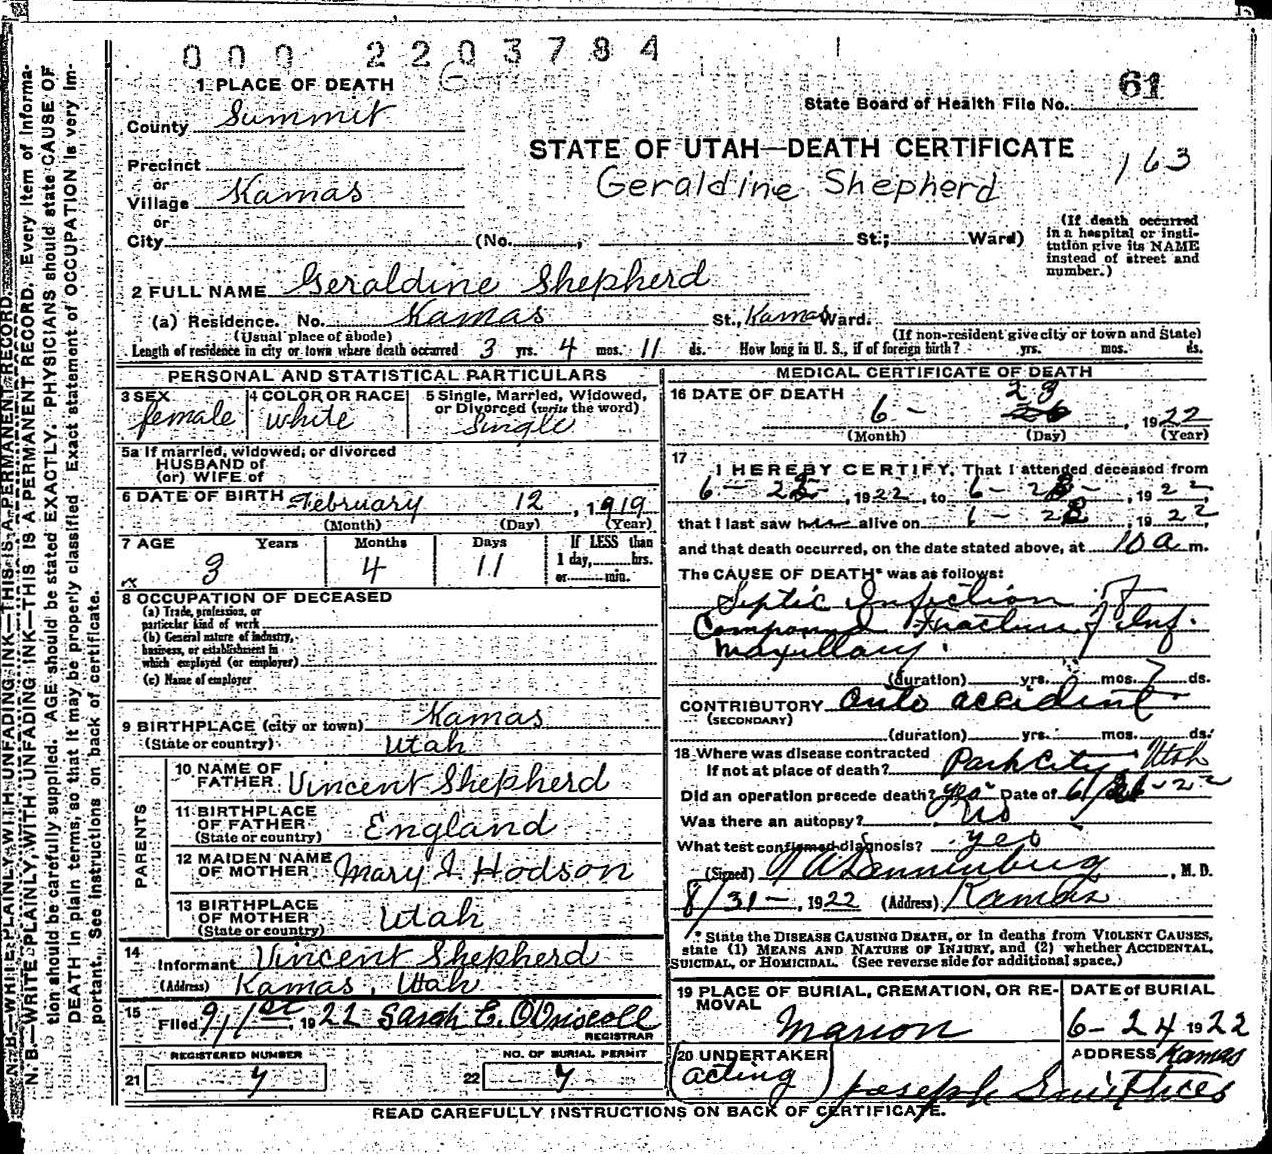 000 2203784
1 PLACE OF DEATH
State Board of Health File No. 61
County Summit
STATE OF UTAH—DEATH CERTIFICATE
163
Precinct
Geraldine Shepherd
or
Village Kamas
or
City (No. , St.; Ward)
(If death occurred
in a hospital or insti-
tution give its NAME
instead of street and
number.)
2 FULL NAME Geraldine Shepherd
(a) Residence. No. Kamas St., Kamas Ward.
(Usual place of abode)
(If non-resident give city or town and State)
Length of residence in city or town where death occurred 3 yrs. 4 mos. 11 ds. How long in U. S., if of foreign birth? yrs. mos. ds.
PERSONAL AND STATISTICAL PARTICULARS
3 SEX
female
4 COLOR OR RACE
white
5 Single, Married, Widowed,
or Divorced (write the word)
Single
5a If married, widowed, or divorced
HUSBAND of
(or) WIFE of
6 DATE OF BIRTH February 12, 1919
(Month) (Day) (Year)
7 AGE Years Months Days
If LESS than
1 day, hrs.
or min.
3 4 11
8 OCCUPATION OF DECEASED
(a) Trade, profession, or
particular kind of work
(b) General nature of industry,
business, or establishment in
which employed (or employer)
(c) Name of employer
9 BIRTHPLACE (city or town) Kamas
(State or country) Utah
PARENTS
10 NAME OF
FATHER Vincent Shepherd
11 BIRTHPLACE
OF FATHER England
(State or country)
12 MAIDEN NAME
OF MOTHER Mary I Hodson
13 BIRTHPLACE
OF MOTHER Utah
(State or country)
14
Informant Vincent Shepherd
(Address) Kamas, Utah
15
Filed 9/1st, 1922 Sarah E. O'Driscoll
REGISTRAR
REGISTERED NUMBER
21
NO. OF BURIAL PERMIT
22
MEDICAL CERTIFICATE OF DEATH
16 DATE OF DEATH
6 - 23, 1922
(Month) (Day) (Year)
17
I HEREBY CERTIFY, That I attended deceased from
6 - , 1922, to 6 - , 1922,
that I last saw alive on , 1922,
and that death occurred, on the date stated above, at 10 a m.
The CAUSE OF DEATH* was as follows:
Septic Infection of
Compound Fracture of Inf.
Maxillary.
(duration) yrs. mos. 7 ds.
CONTRIBUTORY auto accident
(SECONDARY)
(duration) yrs. mos. ds.
18 Where was disease contracted
If not at place of death? Park City Utah
Did an operation precede death? yes Date of
Was there an autopsy? No
What test confirmed diagnosis? yes
(Signed) , M. D.
8/31 -, 1922 (Address) Kamas
* State the DISEASE CAUSING DEATH, or in deaths from VIOLENT CAUSES,
state (1) MEANS AND NATURE OF INJURY, and (2) whether ACCIDENTAL,
SUICIDAL, or HOMICIDAL. (See reverse side for additional space.)
19 PLACE OF BURIAL, CREMATION, OR RE-
MOVAL
Marion
DATE of BURIAL
6 - 24 1922
20 UNDERTAKER
acting
Joseph
ADDRESS Kamas
READ CAREFULLY INSTRUCTIONS ON BACK OF CERTIFICATE.
N. B.—WRITE PLAINLY, WITH UNFADING INK—THIS IS A PERMANENT RECORD. Every item of informa-
tion should be carefully supplied. AGE should be stated EXACTLY. PHYSICIANS should state CAUSE OF
DEATH in plain terms, so that it may be properly classified. Exact statement of OCCUPATION is very im-
portant. See instructions on back of certificate.